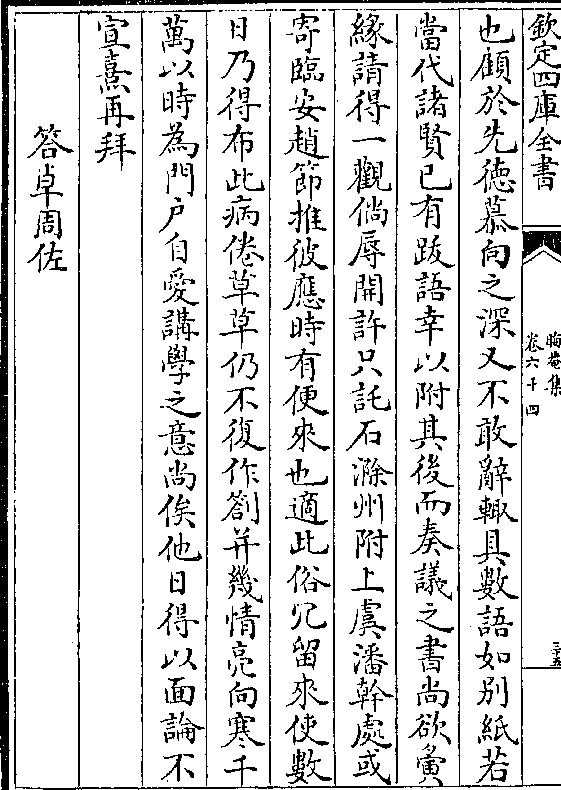 欽定四庫全書
晦菴集
卷六十四
三十五
也顧於先徳慕向之深又不敢辭輙具數語如别紙若
當代諸賢已有跋語幸以附其後而奏議之書尚欲夤
緣請得一觀倘辱開許只託石滁州附上虞潘幹處或
寄臨安趙節推彼應時有便來也適此俗冗留來使數
日乃得布此病倦草草仍不復作劄并幾情亮向寒千
萬以時為門户自愛講學之意尚俟他日得以面論不
宣熹再拜
答卓周佐